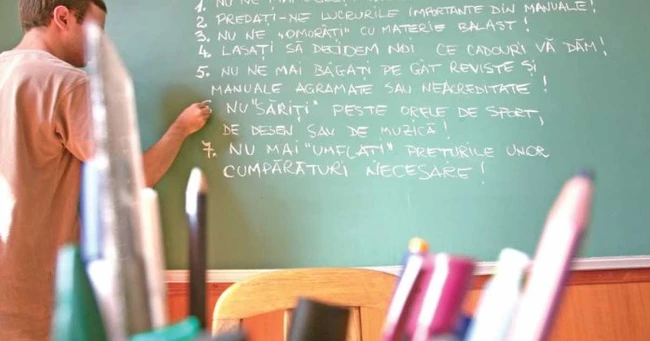 1. NU NE MAI
2. PREDAȚI-NE LUCRURILE IMPORTANTE DIN MANUALE!
3. NU NE „OMORÂȚI" CU MATERIE BALAST!
4. LASAȚI SĂ DECIDEM NOI CE CADOURI VĂ DĂM!
5. NU NE MAI BĂGAȚI PE GÂT REVISTE ȘI
MANUALE AGRAMATE SAU NEACREDITATE!
6 NU "SĂRIȚI" PESTE ORELE DE SPORT,
DE DESEN SAU DE MUZICĂ!
7. NU MAI "UMFLAȚI" PREȚURILE UNOR
CUMPĂRĂTURI NECESARE!